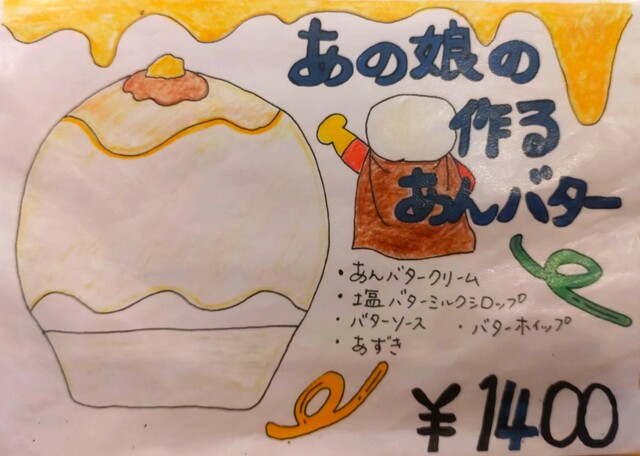 あの娘の
作る
あんバター
・あんバタークリーム
・塩バターミルクシロップ
・バターソース ・バターホイップ
・あずき
¥1400